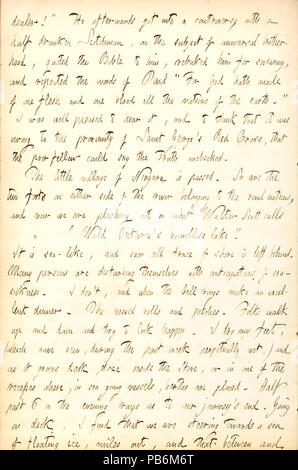 dealer!" He afterwards got into a controversy with a
half drunken Scotchman, on the subject of universal brother-
hood, quoted the Bible to him, rebuked him for swearing,
and repeated the words of Paul "For God hath made
of one flesh and one blood all the nations of the earth."
I was well pleased to hear it, and to think that it was
owing to the proximity of Saint George's Red Cross, that
the poor fellow could say the Truth unchecked.
The little village of Niagara is passed. So are the
two forts on either side of the river belonging to the rival nations,
and now we are plashing it on what Walter Scott calls
"Wild Ontario's boundless lake!"
It is sea-like, and soon all trace of shore is left behind.
Many persons are disturbing themselves with anticipations of sea-
sickness. I don't, and when the bell rings make an excel-
lent dinner. The vessel rolls and pitches. Folks walk
up and down and try to look happy. I dry my feet,
which have been, during the past week perpetually wet, just
as it grows dark, doze beside the stove, or in one of the
recesses where, in sea going vessels, berths are placed. Half
past 6 in the evening brings us to our journey's end. Going
on deck, I find that we are steering towards a sea
of floating ice, miles out, and that between and
alamy
PB6M6T